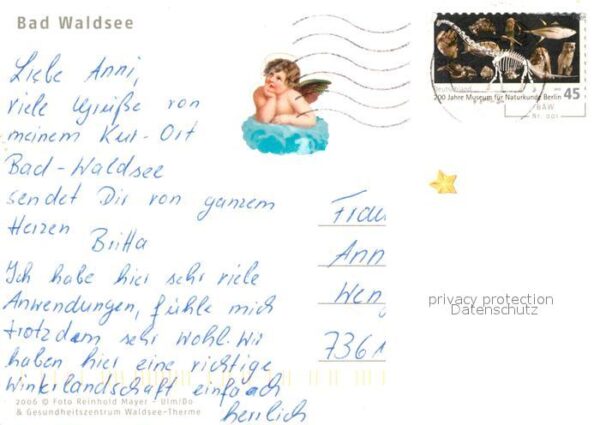 Bad Waldsee
Liebe Anni,
viele Grüße von
meinem Kur-Ort
Bad-Waldsee
sendet Dir von ganzem
Herzen
Britta
Ich habe hier sehr viele
Anwendungen, fühle mich
trotzdem sehr wohl. Wir
haben hier eine richtige
Winterlandschaft einfach
herrlich
2006 © Foto Reinhold Mayer - Ulm/Do
& Gesundheitszentrum Waldsee-Therme
Deutschland
200 Jahre Museum für Naturkunde Berlin 45
Frau
Ann
Wen
7361
privacy protection
Datenschutz